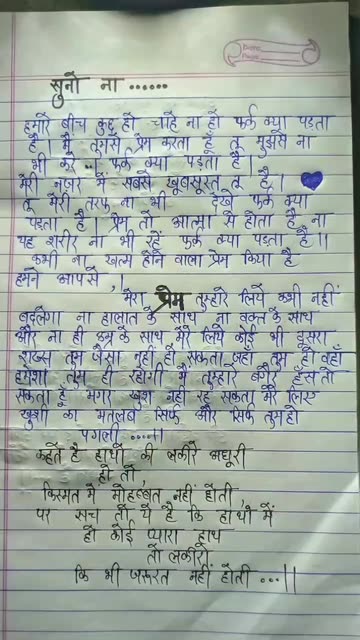 सुनो ना ......
हमारे बीच कुछ हो चाहे ना हो फर्क क्या पड़ता
है । मैं तुमसे प्रेम करता हूँ तू मुझसे ना
भी करे .. । फर्क क्या पड़ता है ।
मेरी नजर में सबसे खूबसूरत तू है ।
तू मेरी तरफ ना भी देखे फर्क क्या
पड़ता है । प्रेम तो आत्मा से होता है ना
यह शरीर ना भी रहे फर्क क्या पड़ता है ।।
कभी ना खत्म होने वाला प्रेम किया है
हमने आपसे ,
मेरा प्रेम तुम्हारे लिये कभी नहीं
बदलेगा ना हालात के साथ ना वक्त के साथ
और ना ही उम्र के साथ मेरे लिये कोई भी दूसरा
शख्स तुम जैसा नही हो सकता जहा तुम हो वहाँ
हमेशा तुम ही रहोगी मैं तुम्हारे बगैर हँस तो
सकता हूँ मगर खुश नही रह सकता मेरे लिए
खुशी का मतलब सिर्फ और सिर्फ तुम हो
पगली .....।।
कहते है हाथो की लकीरे अधूरी
हो तो ,
किस्मत में मोहब्बत नहीं होती ,
पर सच तो ये है कि हाथो में
हो कोई प्यारा हाथ
तो लकीरो
कि भी जरूरत नहीं होती ...।।